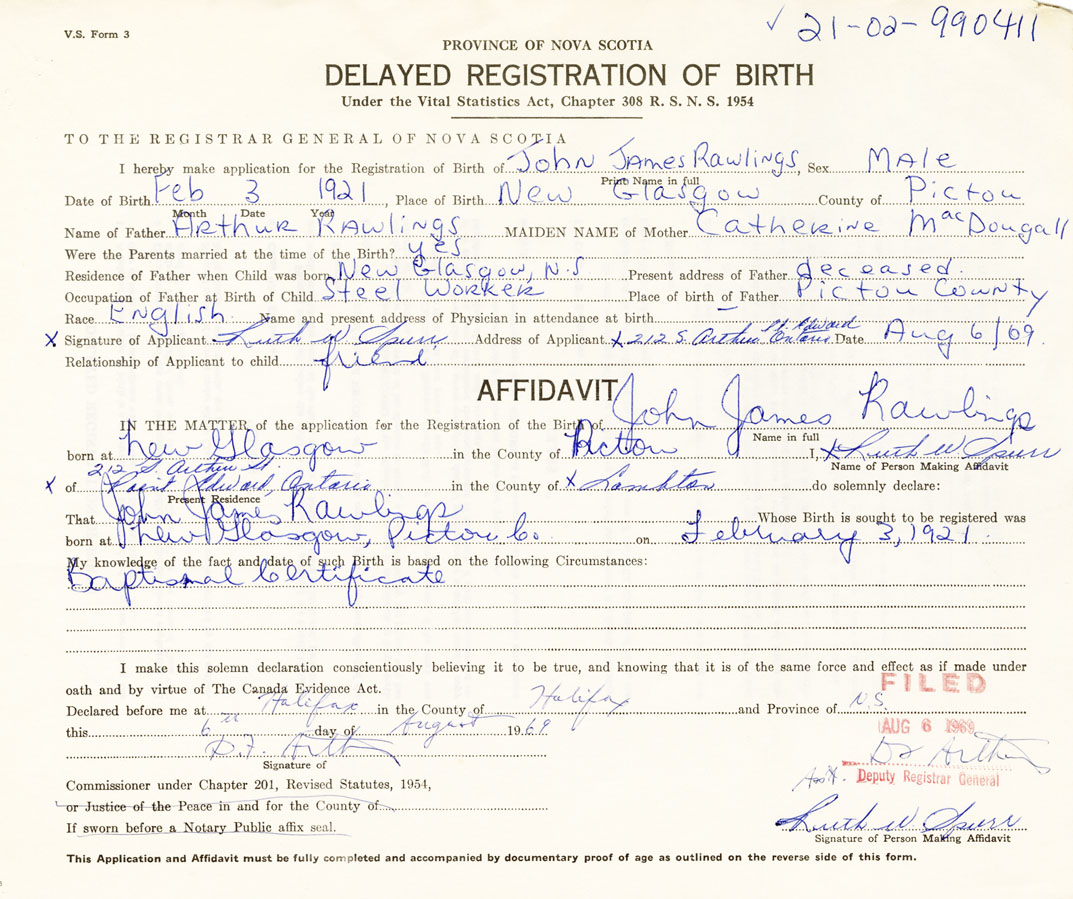 V.S. Form 3
✓ 21-02-990411
PROVINCE OF NOVA SCOTIA
DELAYED REGISTRATION OF BIRTH
Under the Vital Statistics Act, Chapter 308 R. S. N. S. 1954
TO THE REGISTRAR GENERAL OF NOVA SCOTIA
I hereby make application for the Registration of Birth of John James Rawlings, Sex Male
Print Name in full
Date of Birth Feb 3 1921, Place of Birth New Glasgow County of Pictou
Month Date Year
Name of Father Arthur Rawlings MAIDEN NAME of Mother Catherine MacDougall
Were the Parents married at the time of the Birth? yes
Residence of Father when Child was born New Glasgow, N.S Present address of Father deceased.
Occupation of Father at Birth of Child Steel Worker Place of birth of Father Pictou County
Race English Name and present address of Physician in attendance at birth –
x Signature of Applicant Ruth W Spurr Address of Applicant x 212 S. Arthur St. Edward Ontario Date Aug 6/69
Relationship of Applicant to child friend
AFFIDAVIT
IN THE MATTER of the application for the Registration of the Birth of John James Rawlings
Name in full
born at New Glasgow in the County of Pictou I, x Ruth W Spurr
Name of Person Making Affidavit
212 S. Arthur St.
x of Point Edward, Ontario in the County of x Lambton do solemnly declare:
Present Residence
That John James Rawlings Whose Birth is sought to be registered was
born at New Glasgow, Pictou Co. on February 3, 1921.
My knowledge of the fact and date of such Birth is based on the following Circumstances:
Baptismal Certificate
I make this solemn declaration conscientiously believing it to be true, and knowing that it is of the same force and effect as if made under
oath and by virtue of The Canada Evidence Act.
FILED
Declared before me at Halifax in the County of Halifax and Province of N.S.
this 6th day of August 1969
AUG 6 1969
Signature of
Ass't. Deputy Registrar General
Commissioner under Chapter 201, Revised Statutes, 1954,
or Justice of the Peace in and for the County of
If sworn before a Notary Public affix seal.
Ruth W. Spurr
Signature of Person Making Affidavit
This Application and Affidavit must be fully completed and accompanied by documentary proof of age as outlined on the reverse side of this form.